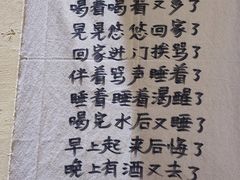 喝着喝着又多了
晃晃悠悠回家了
回家进门挨骂了
伴着骂声睡着了
睡着睡着渴醒了
喝完水后又睡了
早上起来后悔了
晚上有酒又去了